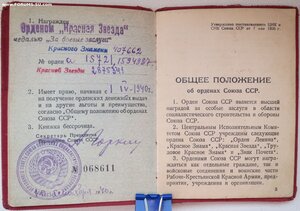 1. Награжден
Орденом „Красная Звезда"
медалью „За боевые заслуги"
Красного Знамени 407662
№ орден 15721, 1534987
Красной Звезды 2875341
2. Имеет право, начиная с 1 IV 1940 г.
на получение орденских денежных выдач
и на другие льготы и преимущества,
согласно „Общего Положения об орденах
Союза ССР".
3. Книжка бессрочная.
Секретарь
№ 068611
Утверждено постановлением ЦИК и
СНК Союза ССР от 7 мая 1936 г.
ОБЩЕЕ ПОЛОЖЕНИЕ
об орденах Союза ССР.
1. Орден Союза ССР является высшей
наградой за особые заслуги в области
социалистического строительства и обороны
Союза ССР.
2. Центральным Исполнительным Комитетом
Союза ССР учреждены следующие
ордена Союза ССР: „Орден Ленина",
„Красное Знамя", „Красная Звезда", „Трудовое
Красное Знамя" и „Знак Почета".
3. Орденами Союза ССР могут награждаться
как отдельные граждане, так и
войсковые соединения и воинские части
Рабоче-Крестьянской Красной Армии, предприятия,
учреждения и организации.
3